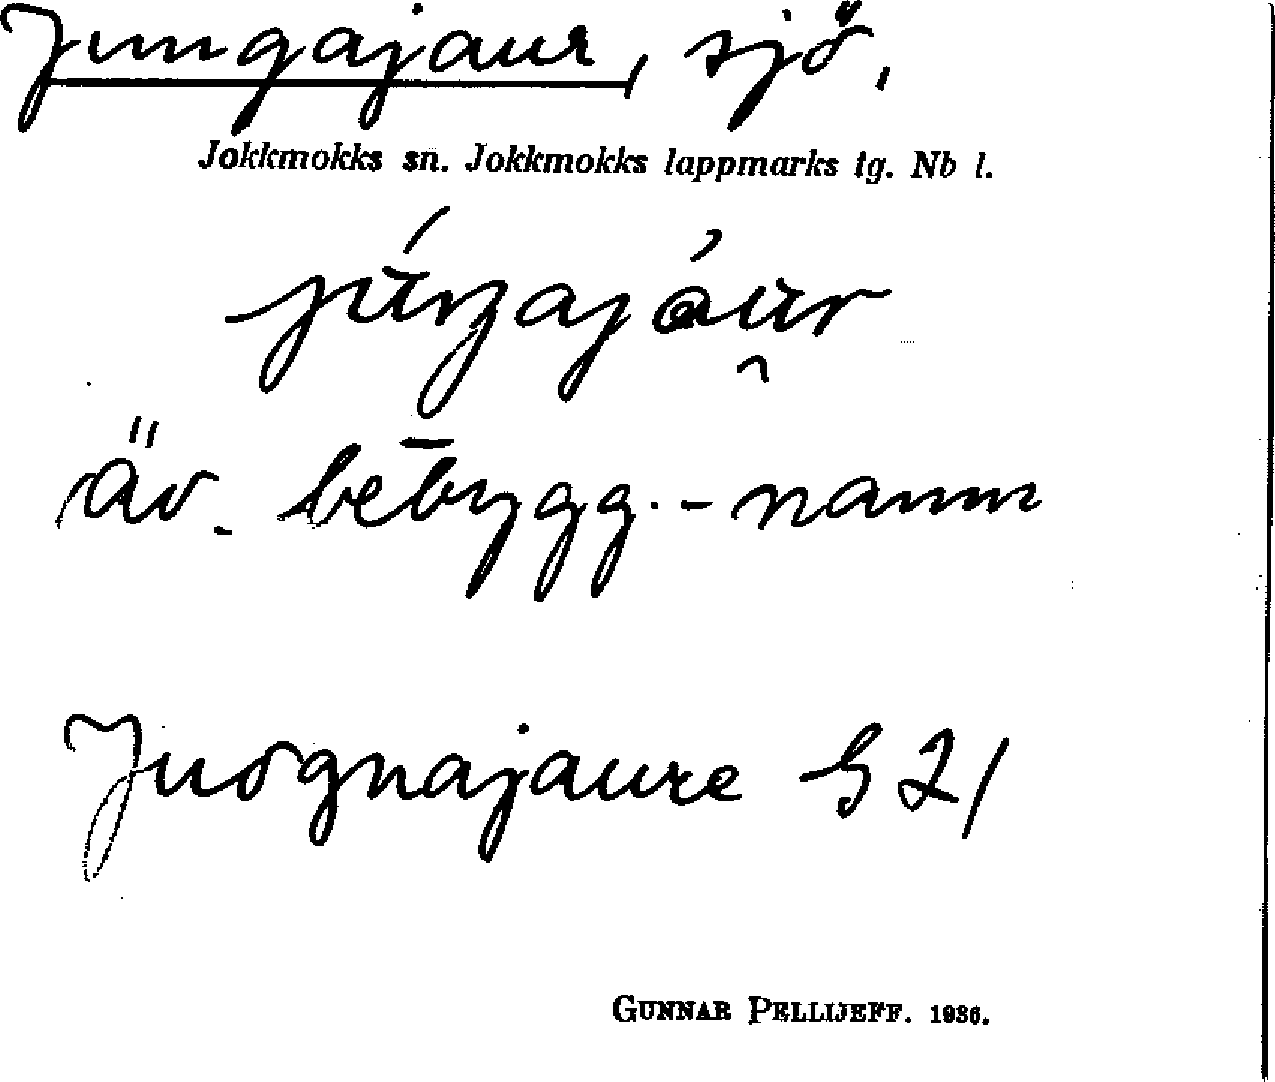 Jungajaur, sjö,
Jokkmokks sn. Jokkmokks lappmarks tg. Nb l.
äv. bebygg.-namn
Juognajaure S 21
GUNNAR PELLIJEFF. 1936.